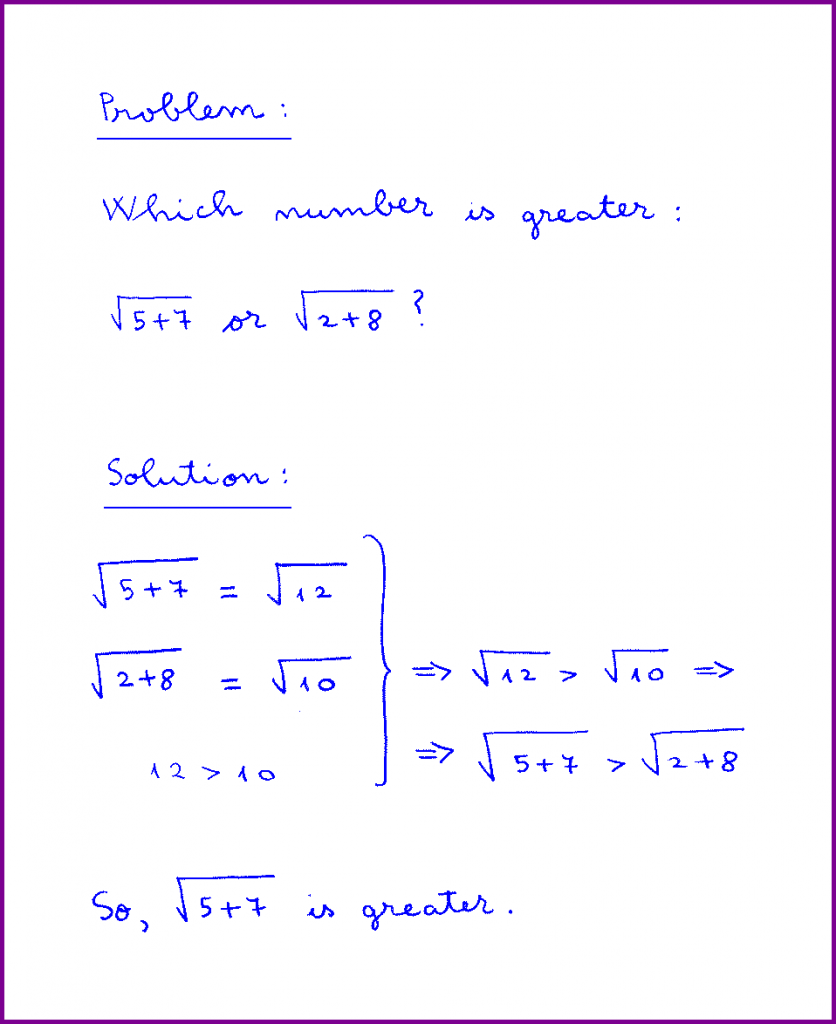 Problem:
Which number is greater:
√5+7 or √2+8 ?
Solution:
√5+7 = √12
√2+8 = √10
12 > 10
⇒ √12 > √10 ⇒
⇒ √5+7 > √2+8
So, √5+7 is greater.